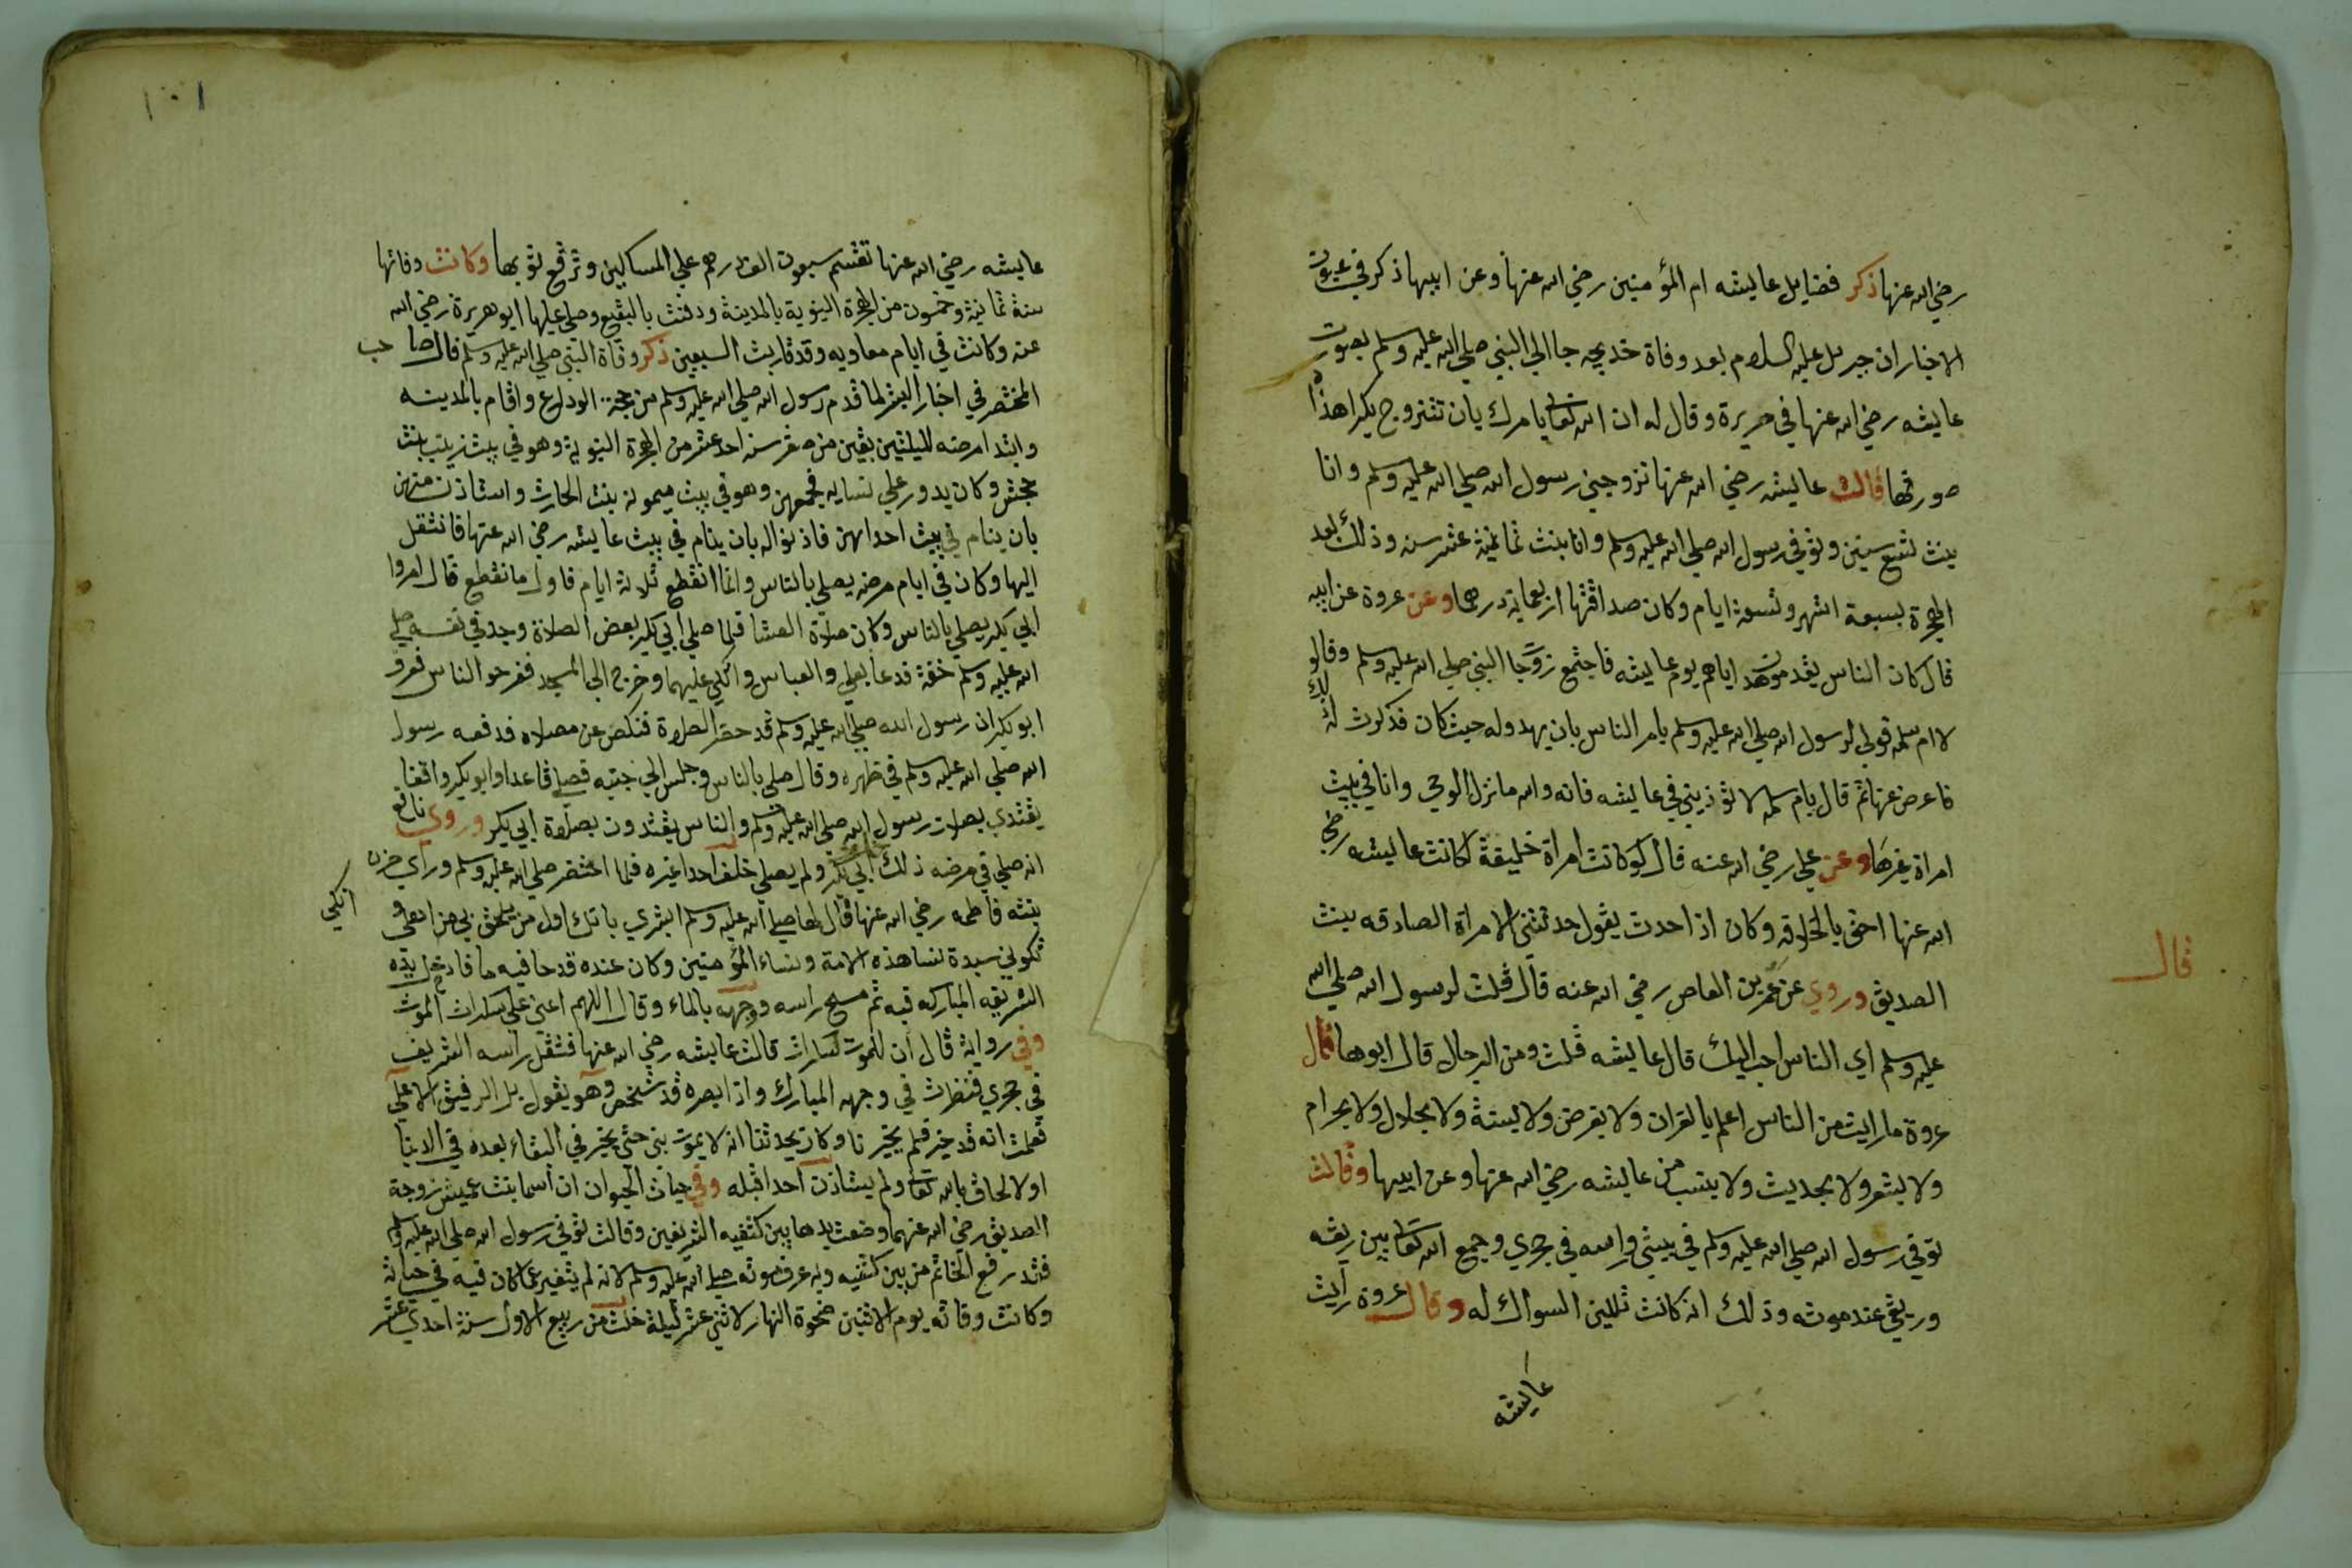 رضي الله عنها ذكر فضايل عايشه ام المؤمنين رضي الله عنها وعن ابيها ذكر في عيون
الاخبار ان جبريل عليه السلام بعد وفاة خديجه جا الي النبي صلي الله عليه وسلم بصورت
عايشه رضي الله عنها في حريرة وقال له ان الله تعالي يامرك بان تتزوج بكرا هذه
صورتها قالت عايشه رضي الله عنها تزوجني رسول الله صلي الله عليه وسلم وانا
بنت تسع سنين وتوفي رسول الله صلي الله عليه وسلم وانا بنت ثمانية عشر سنه وذلك بعد
الهجرة بسبعة اشهر وتسعة ايام وكان صداقتها اربعماية درهما وعن عروة عن ابيه
قال كان الناس يقدمون هد اياهم يوم عايشه فاجتمع زوجا النبي صلي الله عليه وسلم وقالو
لام سلمه قولي لرسول الله صلي الله عليه وسلم يامر الناس بان يهدوله حيث كان فذكرت له ذلك
فاعرض عنها ثم قال يام سلمه لا توذيني في عايشه فانه والله ما نزل الوحي وانا في بيت
امراة غيرها وعن علي رضي الله عنه قال لو كانت امراة خليفة لكانت عايشه رضي
الله عنها احق بالخلافه وكان اذا حدث يقول حدثتني الامراة الصادقه بنت
الصديق وروي عن عمر بن العاص رضي الله عنه قال قلت لرسول الله صلي الله
عليه وسلم اي الناس احب اليك قال عايشه قلت ومن الرجال قال ابوها قال
عروة ما رايت من الناس اعلم بالقران ولا بفرض ولا بسنة ولا بحلال ولا بحرام
ولا بشعر ولا بحديث ولا بنسب من عايشه رضي الله عنها وعن ابيها وقالت
توفي رسول الله صلي الله عليه وسلم في بيتي وراسه في حجري وجمع الله تعالي بين ريقه
وريقي عند موته وذلك انه كانت تلين السواك له وقال عروة رايت
عايشه
قال
١٠١
عايشه رضي الله عنها تقسم سبعون الف درهم علي المساكين وترقع ثوبها وكانت وفاتها
سنة ثمانية وخمسون من الهجرة النبوية بالمدينة ودفنت بالبقيع وصلي عليها ابو هريرة رضي الله
عنه وكانت في ايام معاويه وقد قاربت السبعين ذكر وفاة النبي صلي الله عليه وسلم قال صاحب
المختصر في اخبار البشر لما قدم رسول الله صلي الله عليه وسلم من حجة الوداع واقام بالمدينه
وابتدا مرضه لليلتين بقين من صفر سنه احد عشر من الهجرة النبوية وهو في بيت زينب بنت
جحش وكان يدور علي نسايه فجمعهن وهو في بيت ميمونه بنت الحارث واستاذن منهن
بان ينام في بيت احداهن فاذنواله بان ينام في بيت عايشه رضي الله عنها فانتقل
اليها وكان في ايام مرضه يصلي بالناس وانما انقطع ثلاثة ايام فاول ما نقطع قال امروا
ابي بكر يصلي بالناس وكان صلاة العشا فلما صلي ابي بكر بعض الصلاة وجد في نفسه صلي
الله عليه وسلم خفة فدعا بعلي والعباس واتكي عليهما وخرج الي المسجد ففرحو الناس فعرف
ابو بكر ان رسول الله صلي الله عليه وسلم قد حضر الصلاة فنكص عن مصلاه فدفعه رسول
الله صلي الله عليه وسلم في ظهره وقال صلي بالناس وجلس الي جنبه فصلي قاعدا وابو بكر واقفا
يقتدي بصلات رسول الله صلي الله عليه وسلم والناس يقتدون بصلاة ابي بكر وروي نافع
انه صلي في مرضه ذلك ابي بكر ولم يصلي خلف احدا غيره فلما احتضر صلي الله عليه وسلم وراي حزن
بنته فاطمه رضي الله عنها قال لها صلي الله عليه وسلم ابشري بانك اول من يلحق بي من اهلي و
تكوني سيدة نسا هذه الامة ونساء المؤمنين وكان عنده قدحا فيه ما فادخل يده
الشريفه المباركه فيه ثم مسح راسه ووجهه بالماء وقال اللهم اعني علي سكرات الموت
وفي رواية قال ان للموت لسكرات قالت عايشه رضي الله عنها فثقل راسه الشريف
في حجري فنظرت في وجهه المبارك واذا بصره قد شخص وهو يقول بل الرفيق الاعلي
فعلمت انه قد خير فلم يخيرنا وكان يحدثنا انه لا يموت نبي حتي يخير في البقاء بعده في الدنيا
او الالحاق بالله تعالي ولم يستاذن احدا قبله وفي حيات الحيوان ان اسما بنت عميس زوجة
الصديق رضي الله عنهما وضعت يدها بين كتفيه الشريفين وقالت توفي رسول الله صلي الله عليه وسلم
فقد رفع الخاتم من بين كتفيه وبه عرف موته صلي الله عليه وسلم لانه لم يتغير عما كان فيه في حياته
وكانت وفاته يوم الاثنين ضحوة النهار لاثني عشر ليلة خلت من ربيع الاول سنة احدي عشر